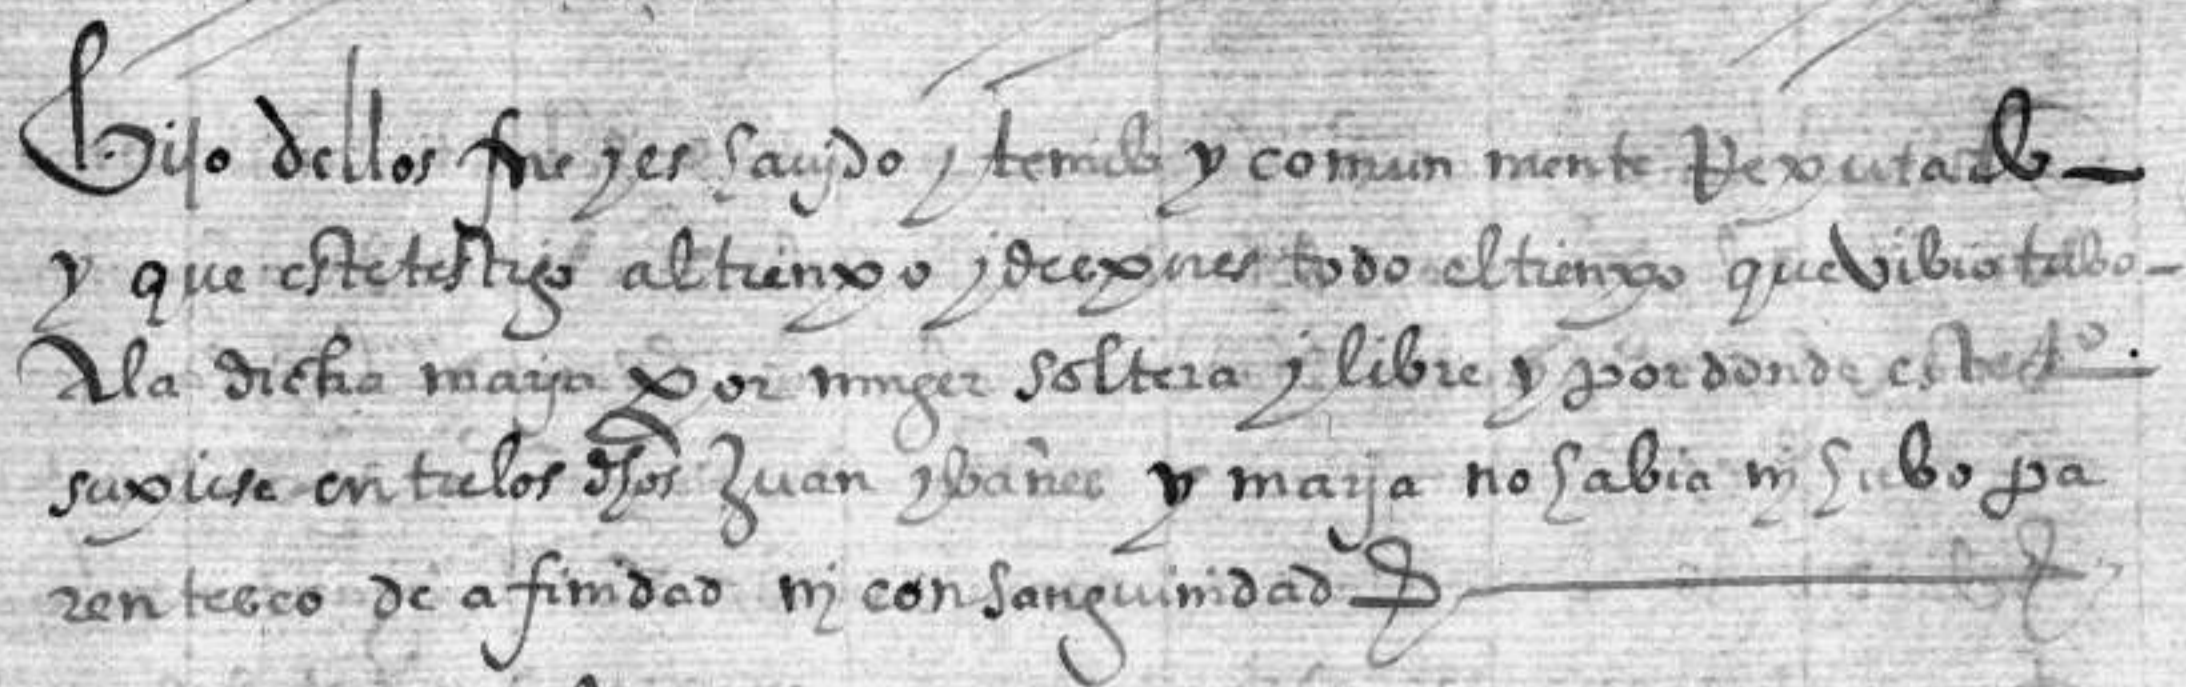 hijo dellos fue y es havido y tenido y comun mente Reputado
y que este testigo al tienpo y despues todo el tienpo que vibio tubo
A la dicha maria por muger soltera y libre y por donde este t.º
supiese entre los dhos Juan ybañes y maria no habia ni hubo pa
rentesco de afinidad ni consanguinidad